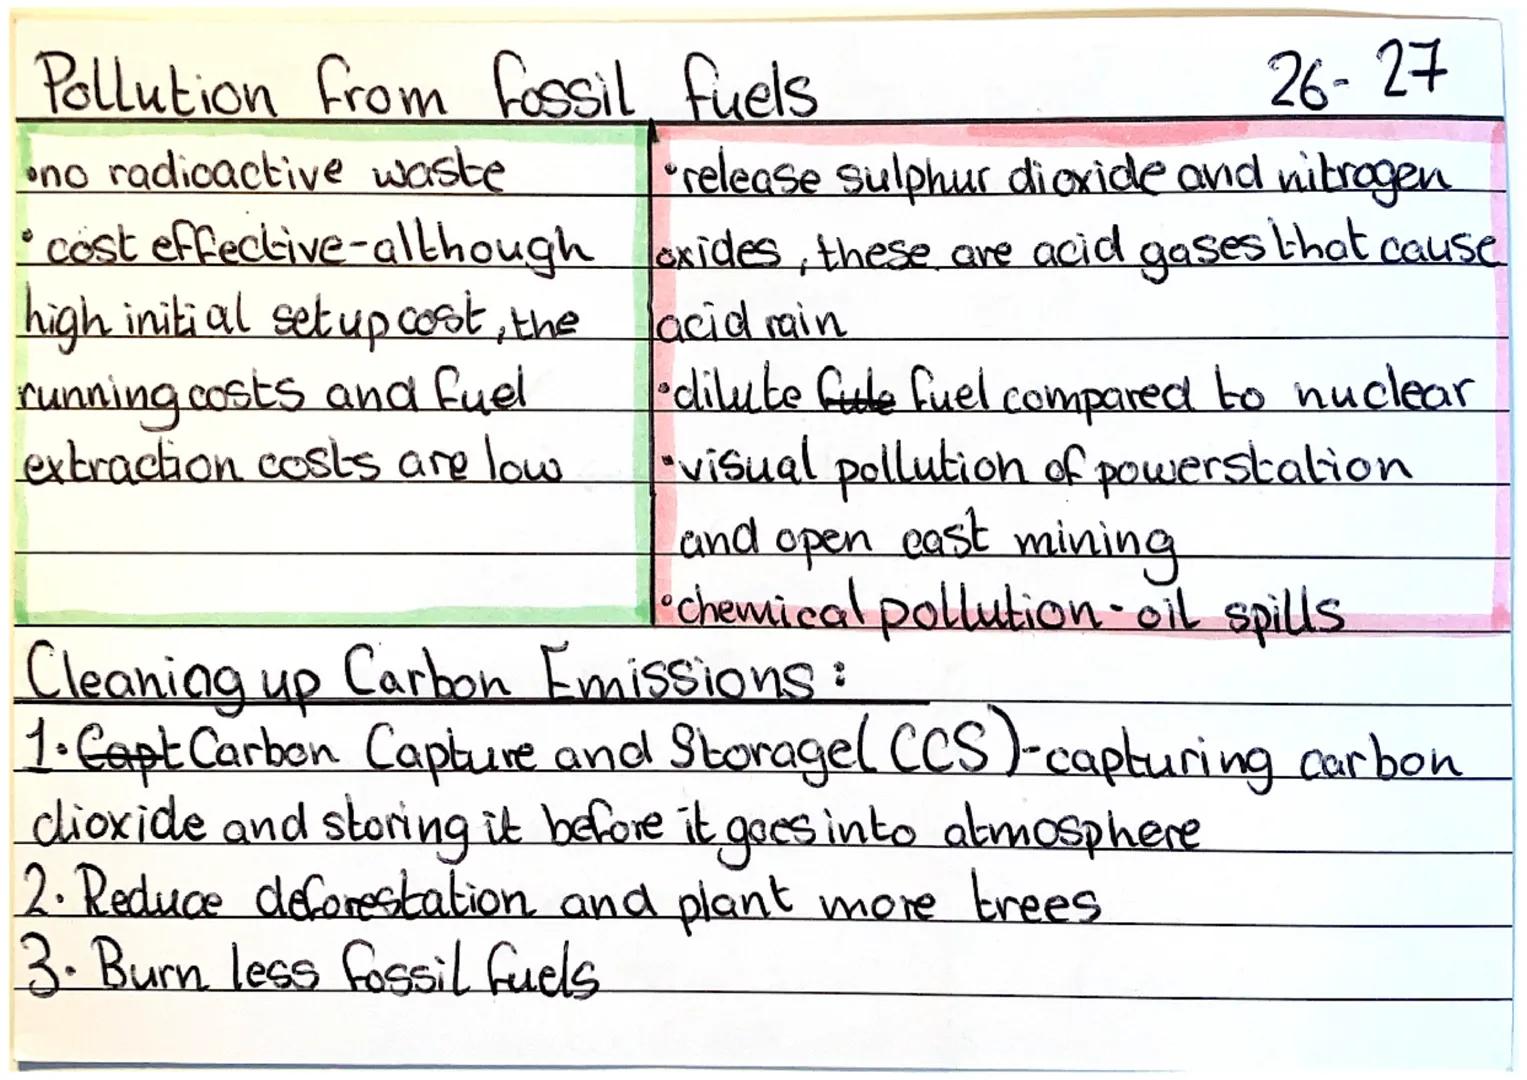 Pollution from fossil fuels 26-27
•no radioactive waste
•cost effective-although
high initial setup cost, the
running costs and fuel
extraction costs are low
•release sulphur dioxide and nitrogen
oxides, these are acid gases that cause
acid rain
•dilute fule fuel compared to nuclear
•visual pollution of powerstation
and open cast mining
•chemical pollution-oil spills
Cleaning up Carbon Emissions:
1. Capt Carbon Capture and Storage (CCS)-capturing carbon
dioxide and storing it before it goes into atmosphere
2. Reduce deforestation and plant more trees
3. Burn less fossil fuels